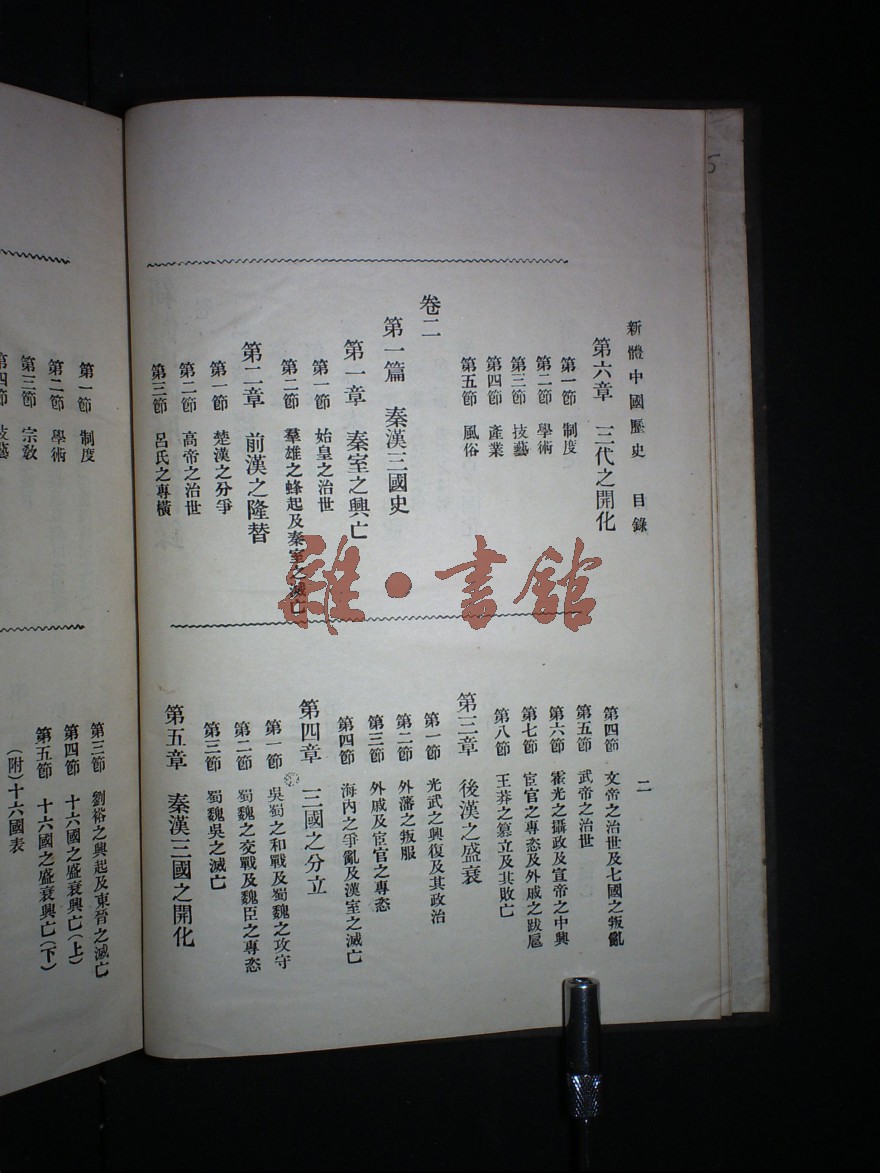 新體中國歷史 目錄
二
第六章 三代之開化
第一節 制度
第二節 學術
第三節 技藝
第四節 產業
第五節 風俗
卷二
第一篇 秦漢三國史
第一章 秦室之興亡
第一節 始皇之治世
第二節 羣雄之蜂起及秦室之滅亡
第二章 前漢之隆替
第一節 楚漢之分爭
第二節 高帝之治世
第三節 呂氏之專橫
第四節 文帝之治世及七國之叛亂
第五節 武帝之治世
第六節 霍光之攝政及宣帝之中興
第七節 宦官之專恣及外戚之跋扈
第八節 王莽之篡立及其敗亡
第三章 後漢之盛衰
第一節 光武之興復及其政治
第二節 外藩之叛服
第三節 外戚及宦官之專恣
第四節 海內之爭亂及漢室之滅亡
第四章 三國之分立
第一節 吳蜀之和戰及蜀魏之攻守
第二節 蜀魏之交戰及魏臣之專恣
第三節 蜀魏吳之滅亡
第五章 秦漢三國之開化
第一節 制度
第二節 學術
第三節 宗教
第四節 技藝
第三節 劉裕之興起及東晉之滅亡
第四節 十六國之盛衰興亡(上)
第五節 十六國之盛衰興亡(下)
(附)十六國表
雜·書館
5